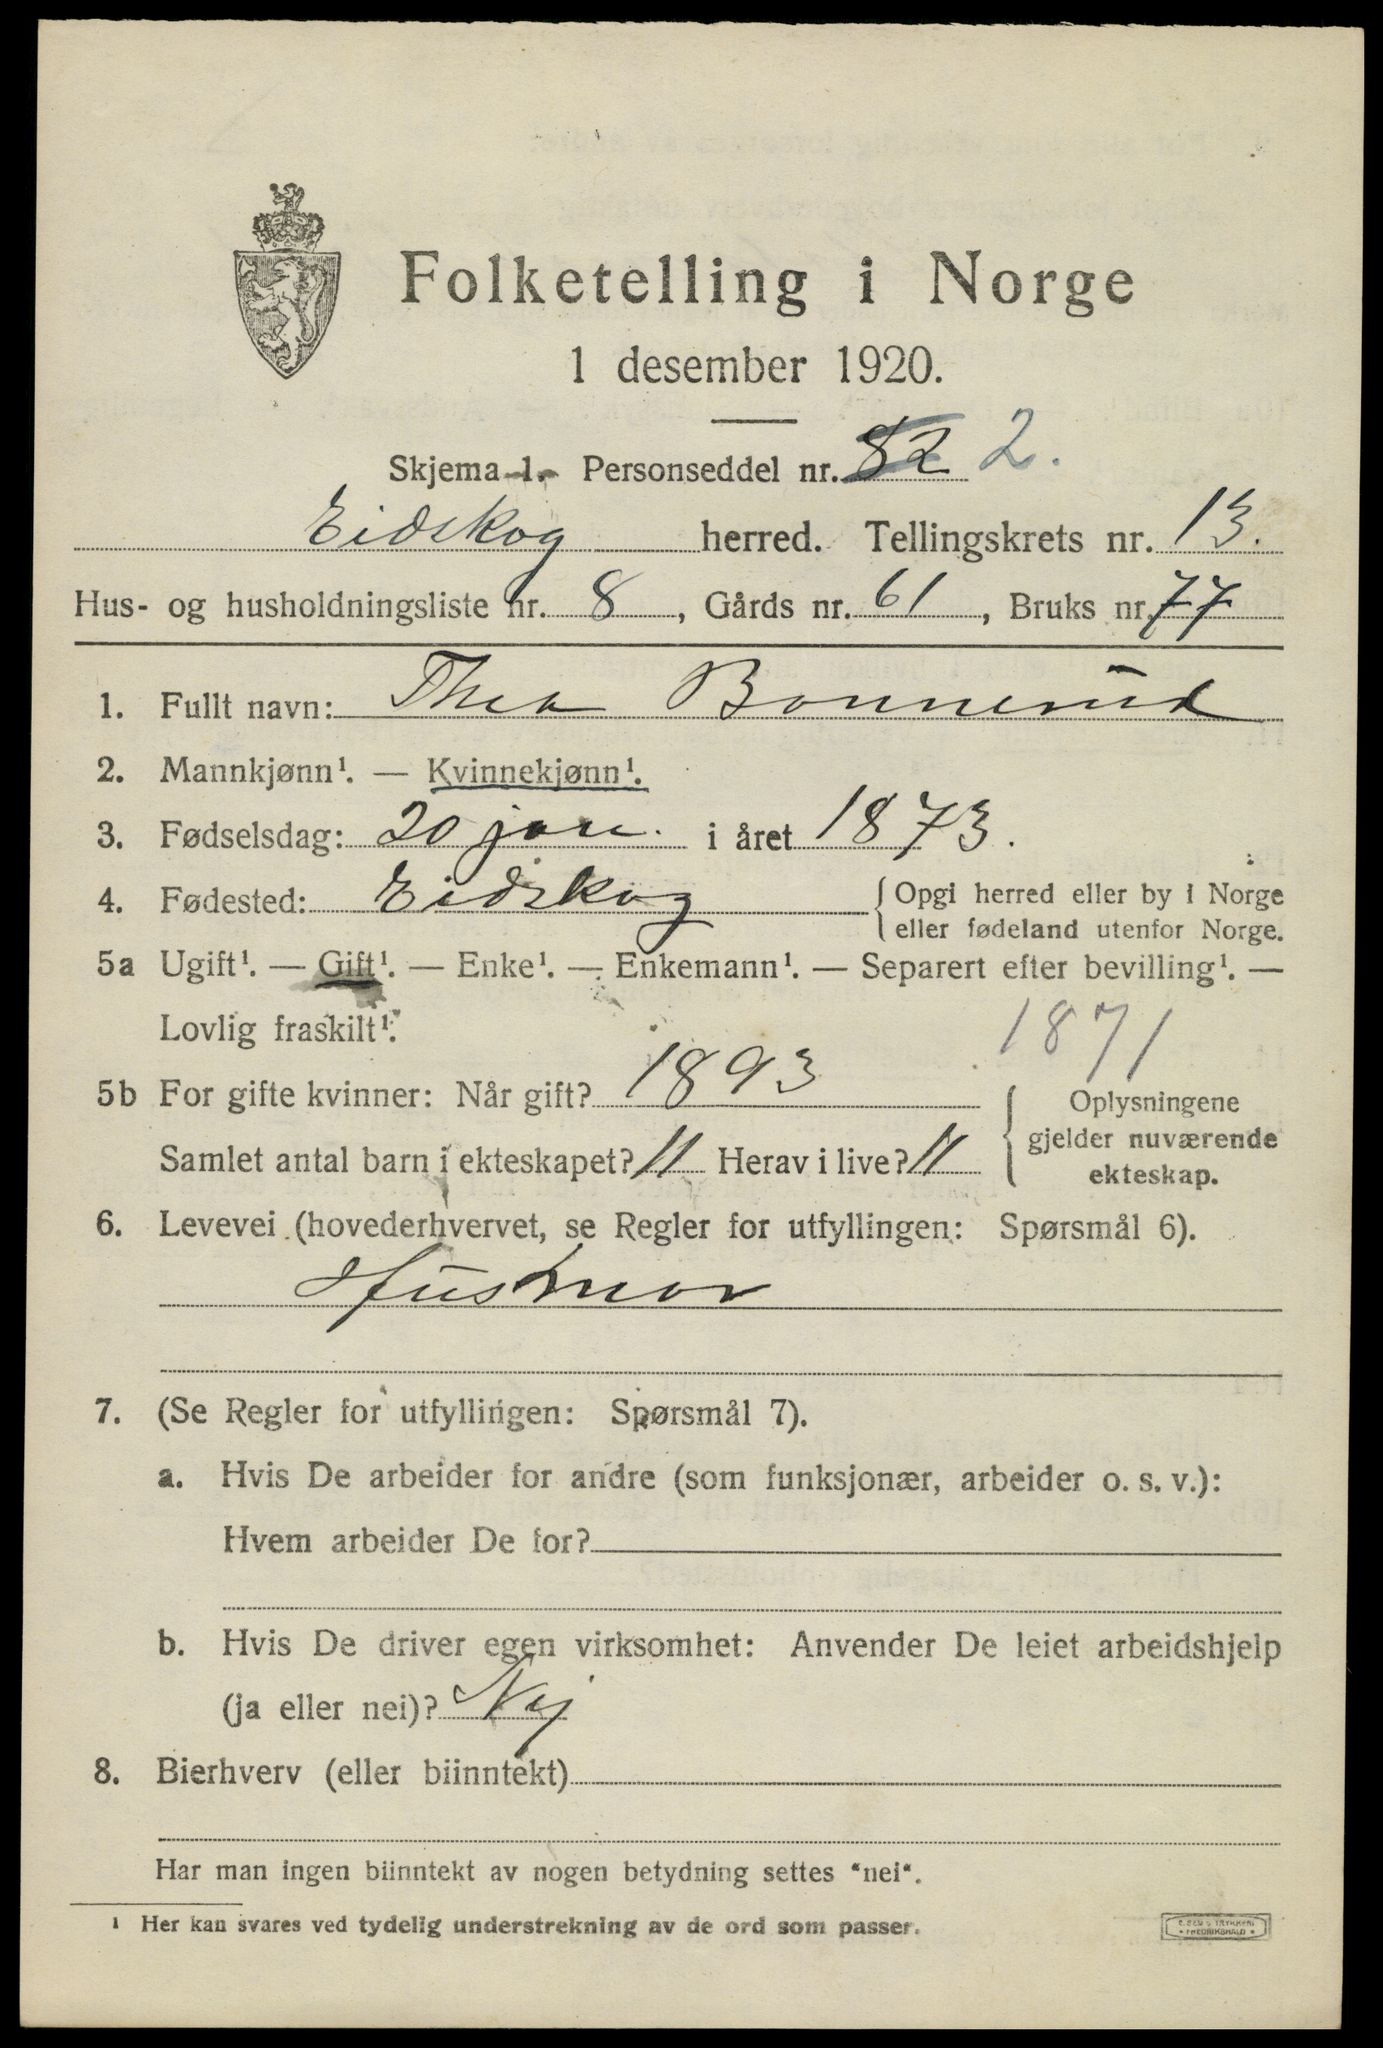 Folketelling i Norge
1 desember 1920.
Skjema 1. Personseddel nr. 82 2.
Eidskog herred. Tellingskrets nr. 13.
Hus- og husholdningsliste nr. 8, Gårds nr. 61, Bruks nr. 77
1. Fullt navn: Thea Bonnerud
2. Mannkjønn¹. — Kvinnekjønn¹.
3. Fødselsdag: 20 jan. i året 1873.
4. Fødested: Eidskog { Opgi herred eller by i Norge
eller fødeland utenfor Norge.
5a Ugift¹. — Gift¹. — Enke¹. — Enkemann¹. — Separert efter bevilling¹. —
Lovlig fraskilt¹.
1871
5b For gifte kvinner: Når gift? 1893
Samlet antal barn i ekteskapet? 11 Herav i live? 11
{ Oplysningene
gjelder nuværende
ekteskap.
6. Levevei (hovederhvervet, se Regler for utfyllingen: Spørsmål 6).
Husmor
7. (Se Regler for utfyllingen: Spørsmål 7).
a. Hvis De arbeider for andre (som funksjonær, arbeider o. s. v.):
Hvem arbeider De for?
b. Hvis De driver egen virksomhet: Anvender De leiet arbeidshjelp
(ja eller nei)? Nej
8. Bierhverv (eller biinntekt)
Har man ingen biinntekt av nogen betydning settes "nei".
¹ Her kan svares ved tydelig understrekning av de ord som passer.
TRYKKERI
FREDRIKSHALD